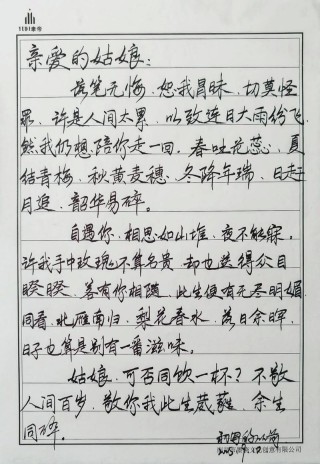 1191豪作
亲爱的姑娘:
落笔无悔、恕我冒昧、切莫怪
罪、许是人间太累、以致连日大雨纷飞
然我仍想陪你走一回、春吐花蕊、夏
结青梅、秋黄麦穗、冬降年瑞、日走
月追、韶华易碎。
自遇你、相思如山堆、夜不能寐、
许我手中玫瑰不算名贵、却也惹得众目
睽睽、若有你相随、此生便有无尽明媚
同看、北雁南归、梨花春水、落日余晖
日子也算是别有一番滋味。
姑娘、可否同饮一杯?不敬
人间百岁、敬你我此生葳蕤、余生
同醉。
文化创意有限公司